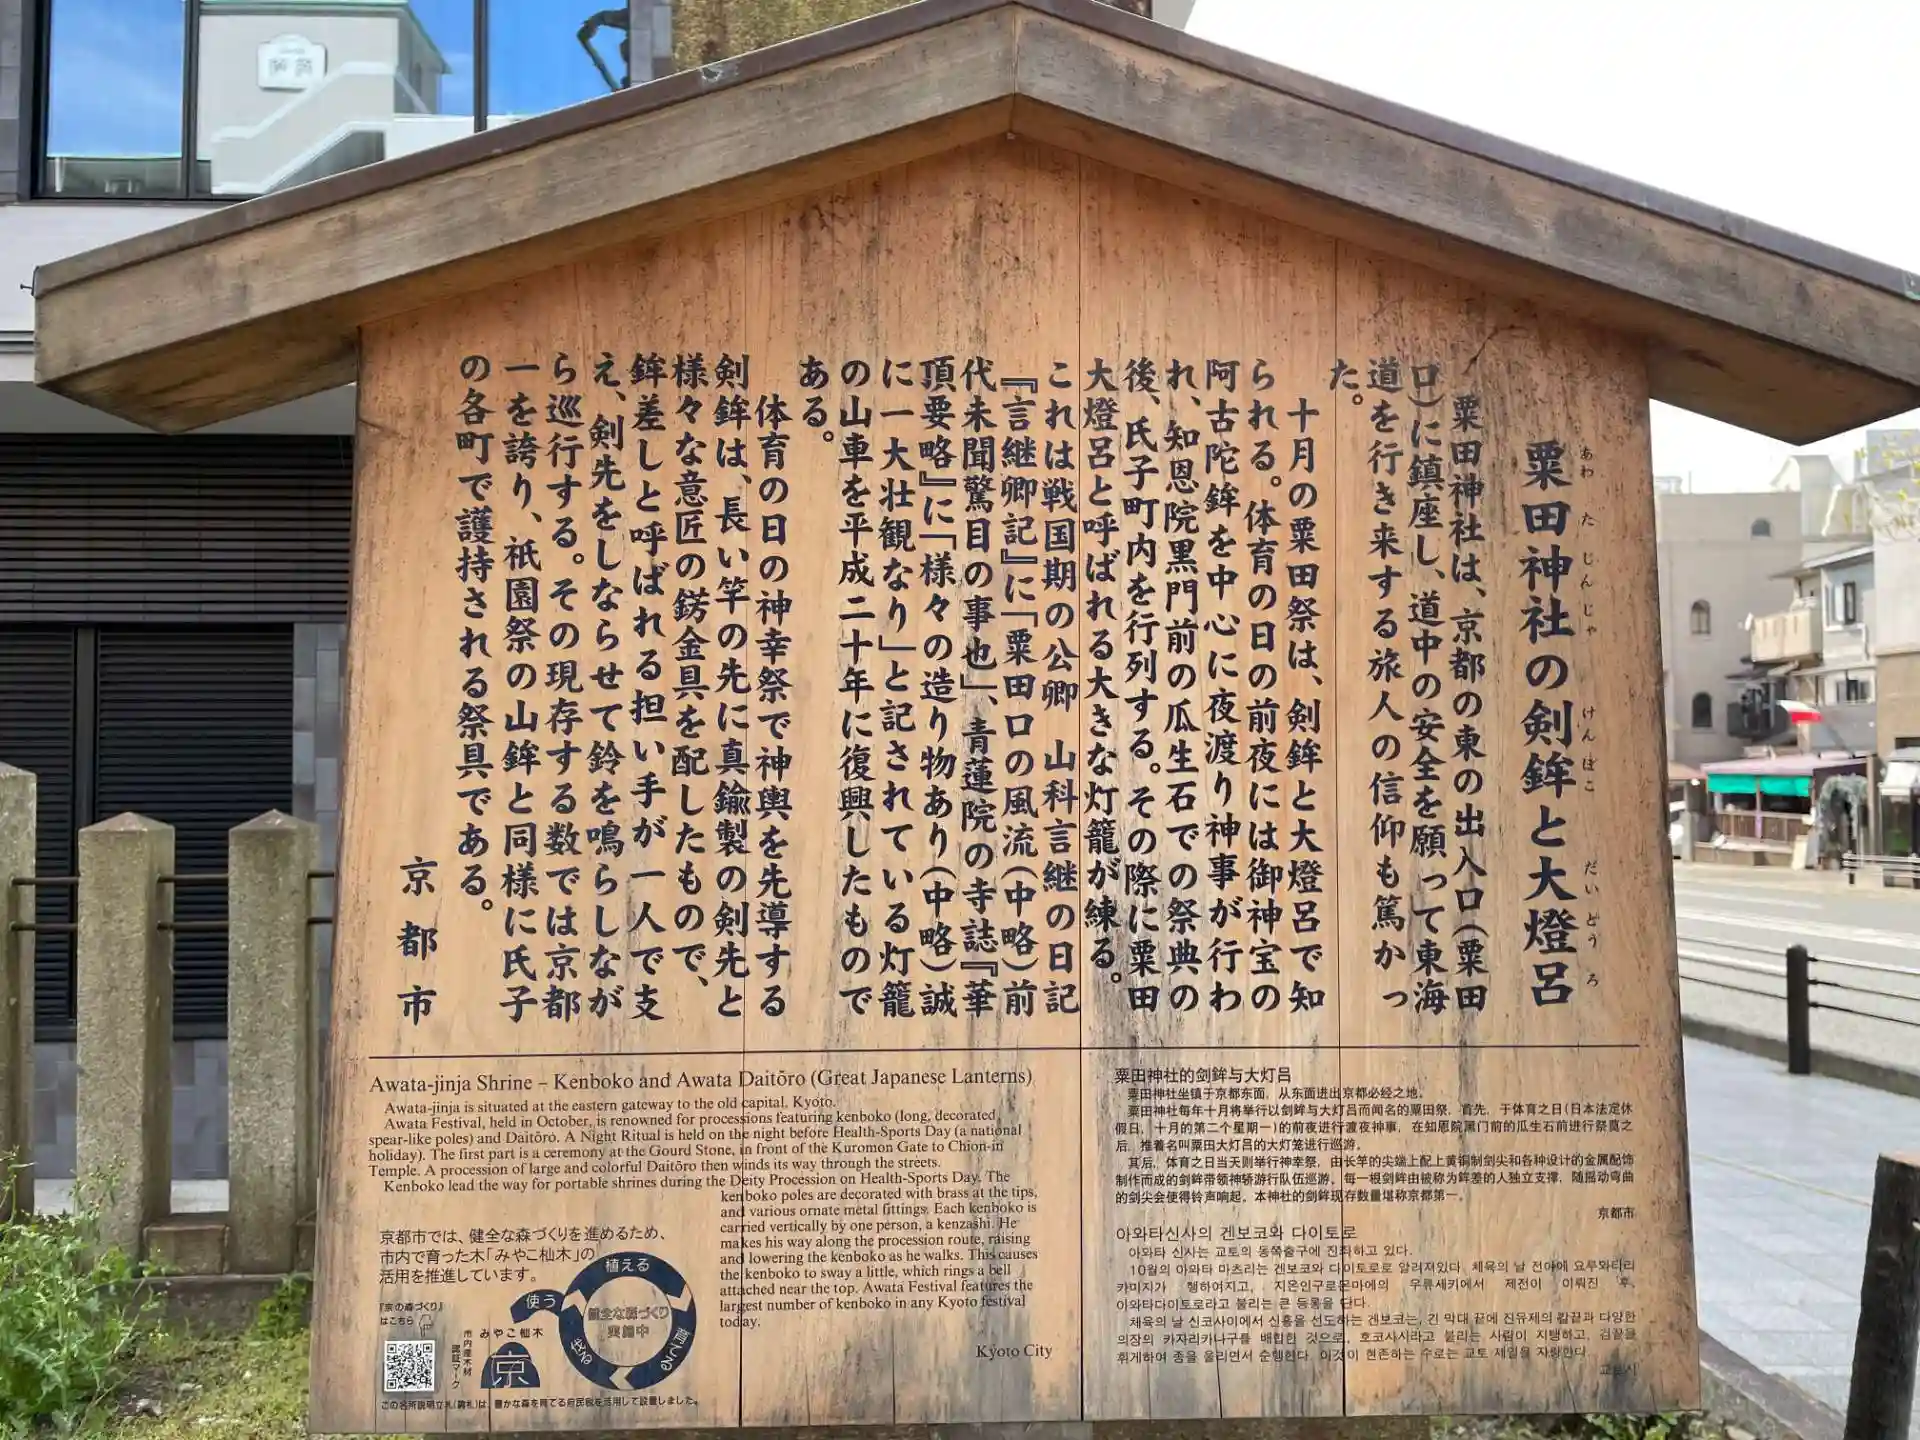 粟田神社の剣鉾と大燈呂
あわ た じん じゃ けん ぼこ だい とう ろ
粟田神社は、京都の東の出入口(粟田
口)に鎮座し、道中の安全を願って東海
道を行き来する旅人の信仰も篤かっ
た。
十月の粟田祭は、剣鉾と大燈呂で知
られる。体育の日の前夜には御神宝の
阿古陀鉾を中心に夜渡り神事が行わ
れ、知恩院黒門前の瓜生石での祭典の
後、氏子町内を行列する。その際に粟田
大燈呂と呼ばれる大きな灯籠が練る。
これは戦国期の公卿 山科言継の日記
『言継卿記』に「粟田口の風流(中略)前
代未聞驚目の事也」、青蓮院の寺誌『華
頂要略』に「様々の造り物あり(中略)誠
に一大壮観なり」と記されている灯籠
の山車を平成二十年に復興したもので
ある。
体育の日の神幸祭で神輿を先導する
剣鉾は、長い竿の先に真鍮製の剣先と
様々な意匠の錺金具を配したもので、
鉾差しと呼ばれる担い手が一人で支
え、剣先をしならせて鈴を鳴らしなが
ら巡行する。その現存する数では京都
一を誇り、祇園祭の山鉾と同様に氏子
の各町で護持される祭具である。
京都市
Awata-jinja Shrine – Kenboko and Awata Daitōro (Great Japanese Lanterns)
Awata-jinja is situated at the eastern gateway to the old capital, Kyoto.
Awata Festival, held in October, is renowned for processions featuring kenboko (long, decorated,
spear-like poles) and Daitōro. A Night Ritual is held on the night before Health-Sports Day (a national
holiday). The first part is a ceremony at the Gourd Stone, in front of the Kuromon Gate to Chion-in
Temple. A procession of large and colorful Daitōro then winds its way through the streets.
Kenboko lead the way for portable shrines during the Deity Procession on Health-Sports Day. The
kenboko poles are decorated with brass at the tips,
and various ornate metal fittings. Each kenboko is
carried vertically by one person, a kenzashi. He
makes his way along the procession route, raising
and lowering the kenboko as he walks. This causes
the kenboko to sway a little, which rings a bell
attached near the top. Awata Festival features the
largest number of kenboko in any Kyoto festival
today.
Kyoto City
京都市では、健全な森づくりを進めるため、
市内で育った木「みやこ杣木」の
活用を推進しています。
『京の森づくり』
はこちら
植える
育てる
伐る
使う
健全な森づくり
実施中
市内産木材
認証マーク
みやこ杣木
京
この名所説明立札(駒札)は、豊かな森を育てる府民税を活用して設置しました。
粟田神社的剑鉾与大灯吕
粟田神社坐镇于京都东面，从东面进出京都必经之地。
粟田神社每年十月将举行以剑鉾与大灯吕而闻名的粟田祭．首先，于体育之日(日本法定休
假日，十月的第二个星期一)的前夜进行渡夜神事，在知恩院黑门前的瓜生石前进行祭奠之
后，推着名叫粟田大灯吕的大灯笼进行巡游。
其后，体育之日当天则举行神幸祭，由长竿的尖端上配上黄铜制剑尖和各种设计的金属配饰
制作而成的剑鉾带领神轿游行队伍巡游，每一根剑鉾由被称为鉾差的人独立支撑，随摇动弯曲
的剑尖会使得铃声响起，本神社的剑鉾现存数量堪称京都第一。
京都市
아와타신사의 겐보코와 다이토로
아와타 신사는 교토의 동쪽출구에 진좌하고 있다.
10월의 아와타 마츠리는 겐보코와 다이토로로 알려져있다. 체육의 날 전야에 요루와타리
카미지가 행하여지고, 지온인구로몬마에의 우류세키에서 제전이 이뤄진 후,
아와타다이토로라고 불리는 큰 등롱을 단다.
체육의 날 신코사이에서 신흥을 선도하는 겐보코는, 긴 막대 끝에 진유제의 칼끝과 다양한
의장의 카자리카나구를 배합한 것으로, 호코사시라고 불리는 사람이 지탱하고, 검끝을
휘게하여 종을 울리면서 순행한다. 이것이 현존하는 수로는 교토 제일을 자랑한다.
교토시